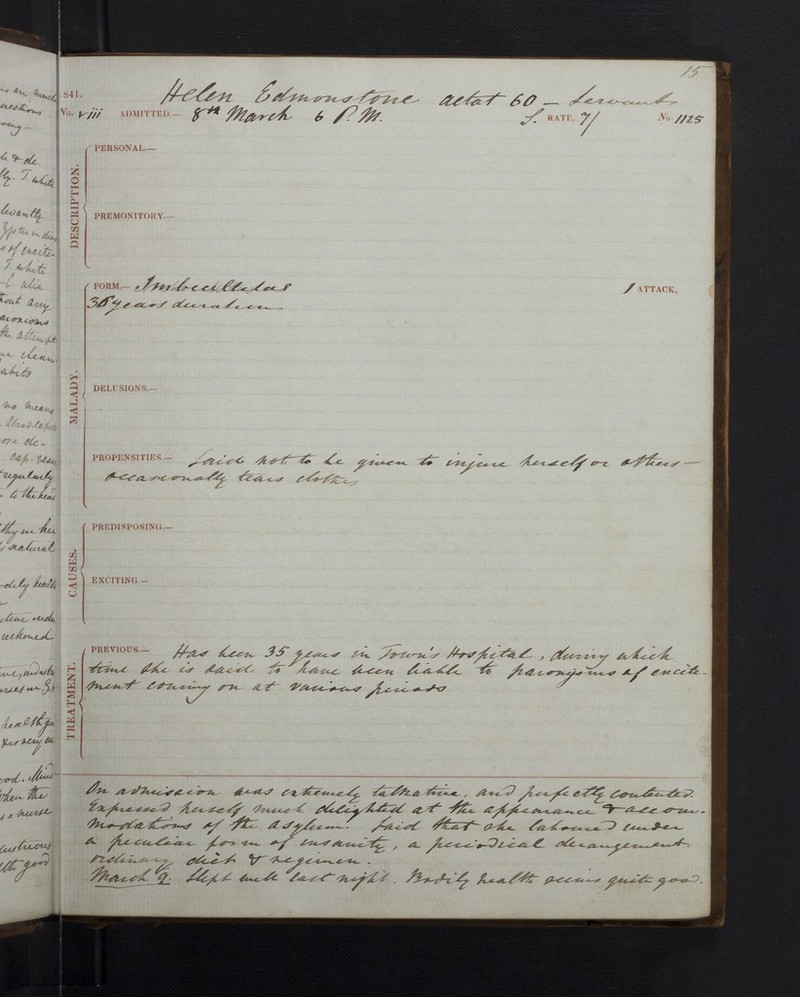 15
841. Helen Edmonstone aetat 60 – Servant
No. viii ADMITTED.— 8th March 6 P.M. S. RATE, 7/ No. 1125
DESCRIPTION.
PERSONAL.—
PREMONITORY.—
MALADY.
FORM.— Imbecilitas 1 ATTACK,
35 years duration
DELUSIONS.—
PROPENSITIES.— Said not to be given to injure herself or others –
occasionally tears clothes
CAUSES.
PREDISPOSING.—
EXCITING.—
TREATMENT.
PREVIOUS.— Has been 35 years in Town's Hospital, during which
time she is said to have been liable to paroxysms of excite-
ment coming on at various periods
On admission was extremely talkative, and perfectly contented.
Expressed herself much delighted at the appearance & accom-
modations of the asylum. Said that she laboured under
a peculiar form of insanity, a periodical derangement
ordinary diet & regimen.
March 9. Slept well last night. Bodily health seems quite good.